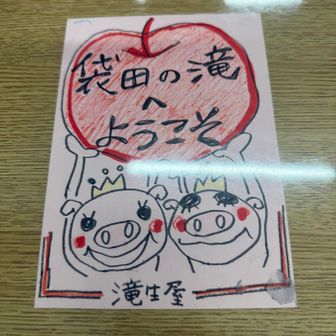 袋田の滝
へ
ようこそ
滝生屋